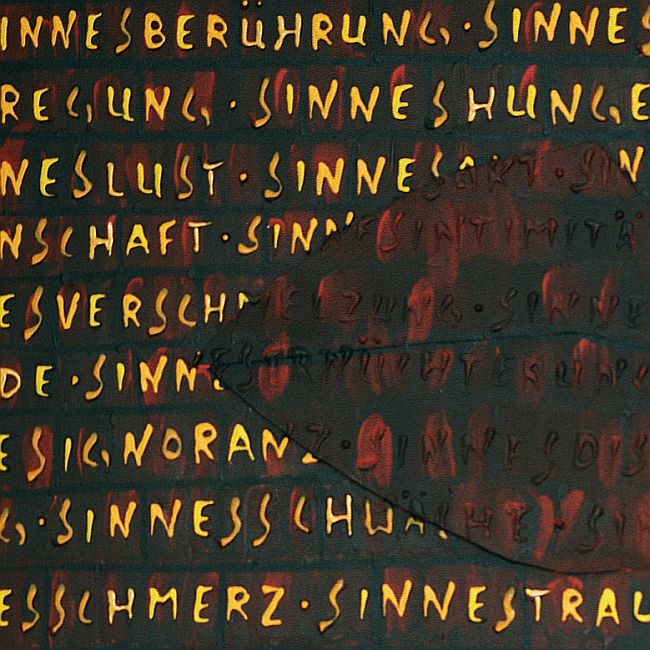 INNESBERÜHRUNG · SINNES
REGUNG · SINNESHUNGE
NESLUST · SINNESART · SIN
NSCHAFT · SINNESINTIMITÄ
ESVERSCHMELZUNG · SINNE
DE · SINNESERNÜCHTERUNG
ESIGNORANZ · SINNESDIS
G · SINNESSCHWÄCHE · SIN
ESSCHMERZ · SINNESTRAU